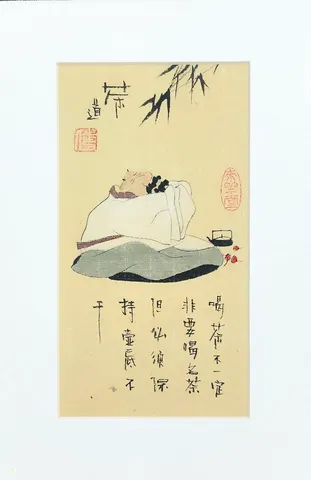 茶道
喝茶不一定
非要喝名茶
但必须保
持壶底不
干